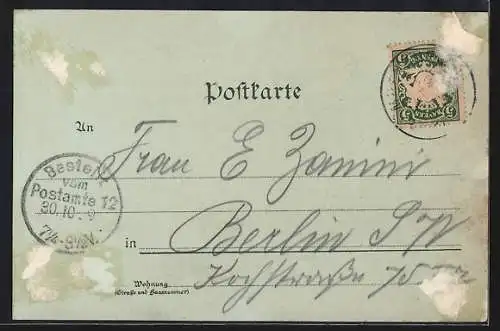 Postkarte
BAYERN
An
Frau E Zanini
Bestellt
vom
Postamte 12
30.10. 9
7½-9½V.
in
Berlin SW
Kochstraße 75
Wohnung
(Straße und Hausnummer)